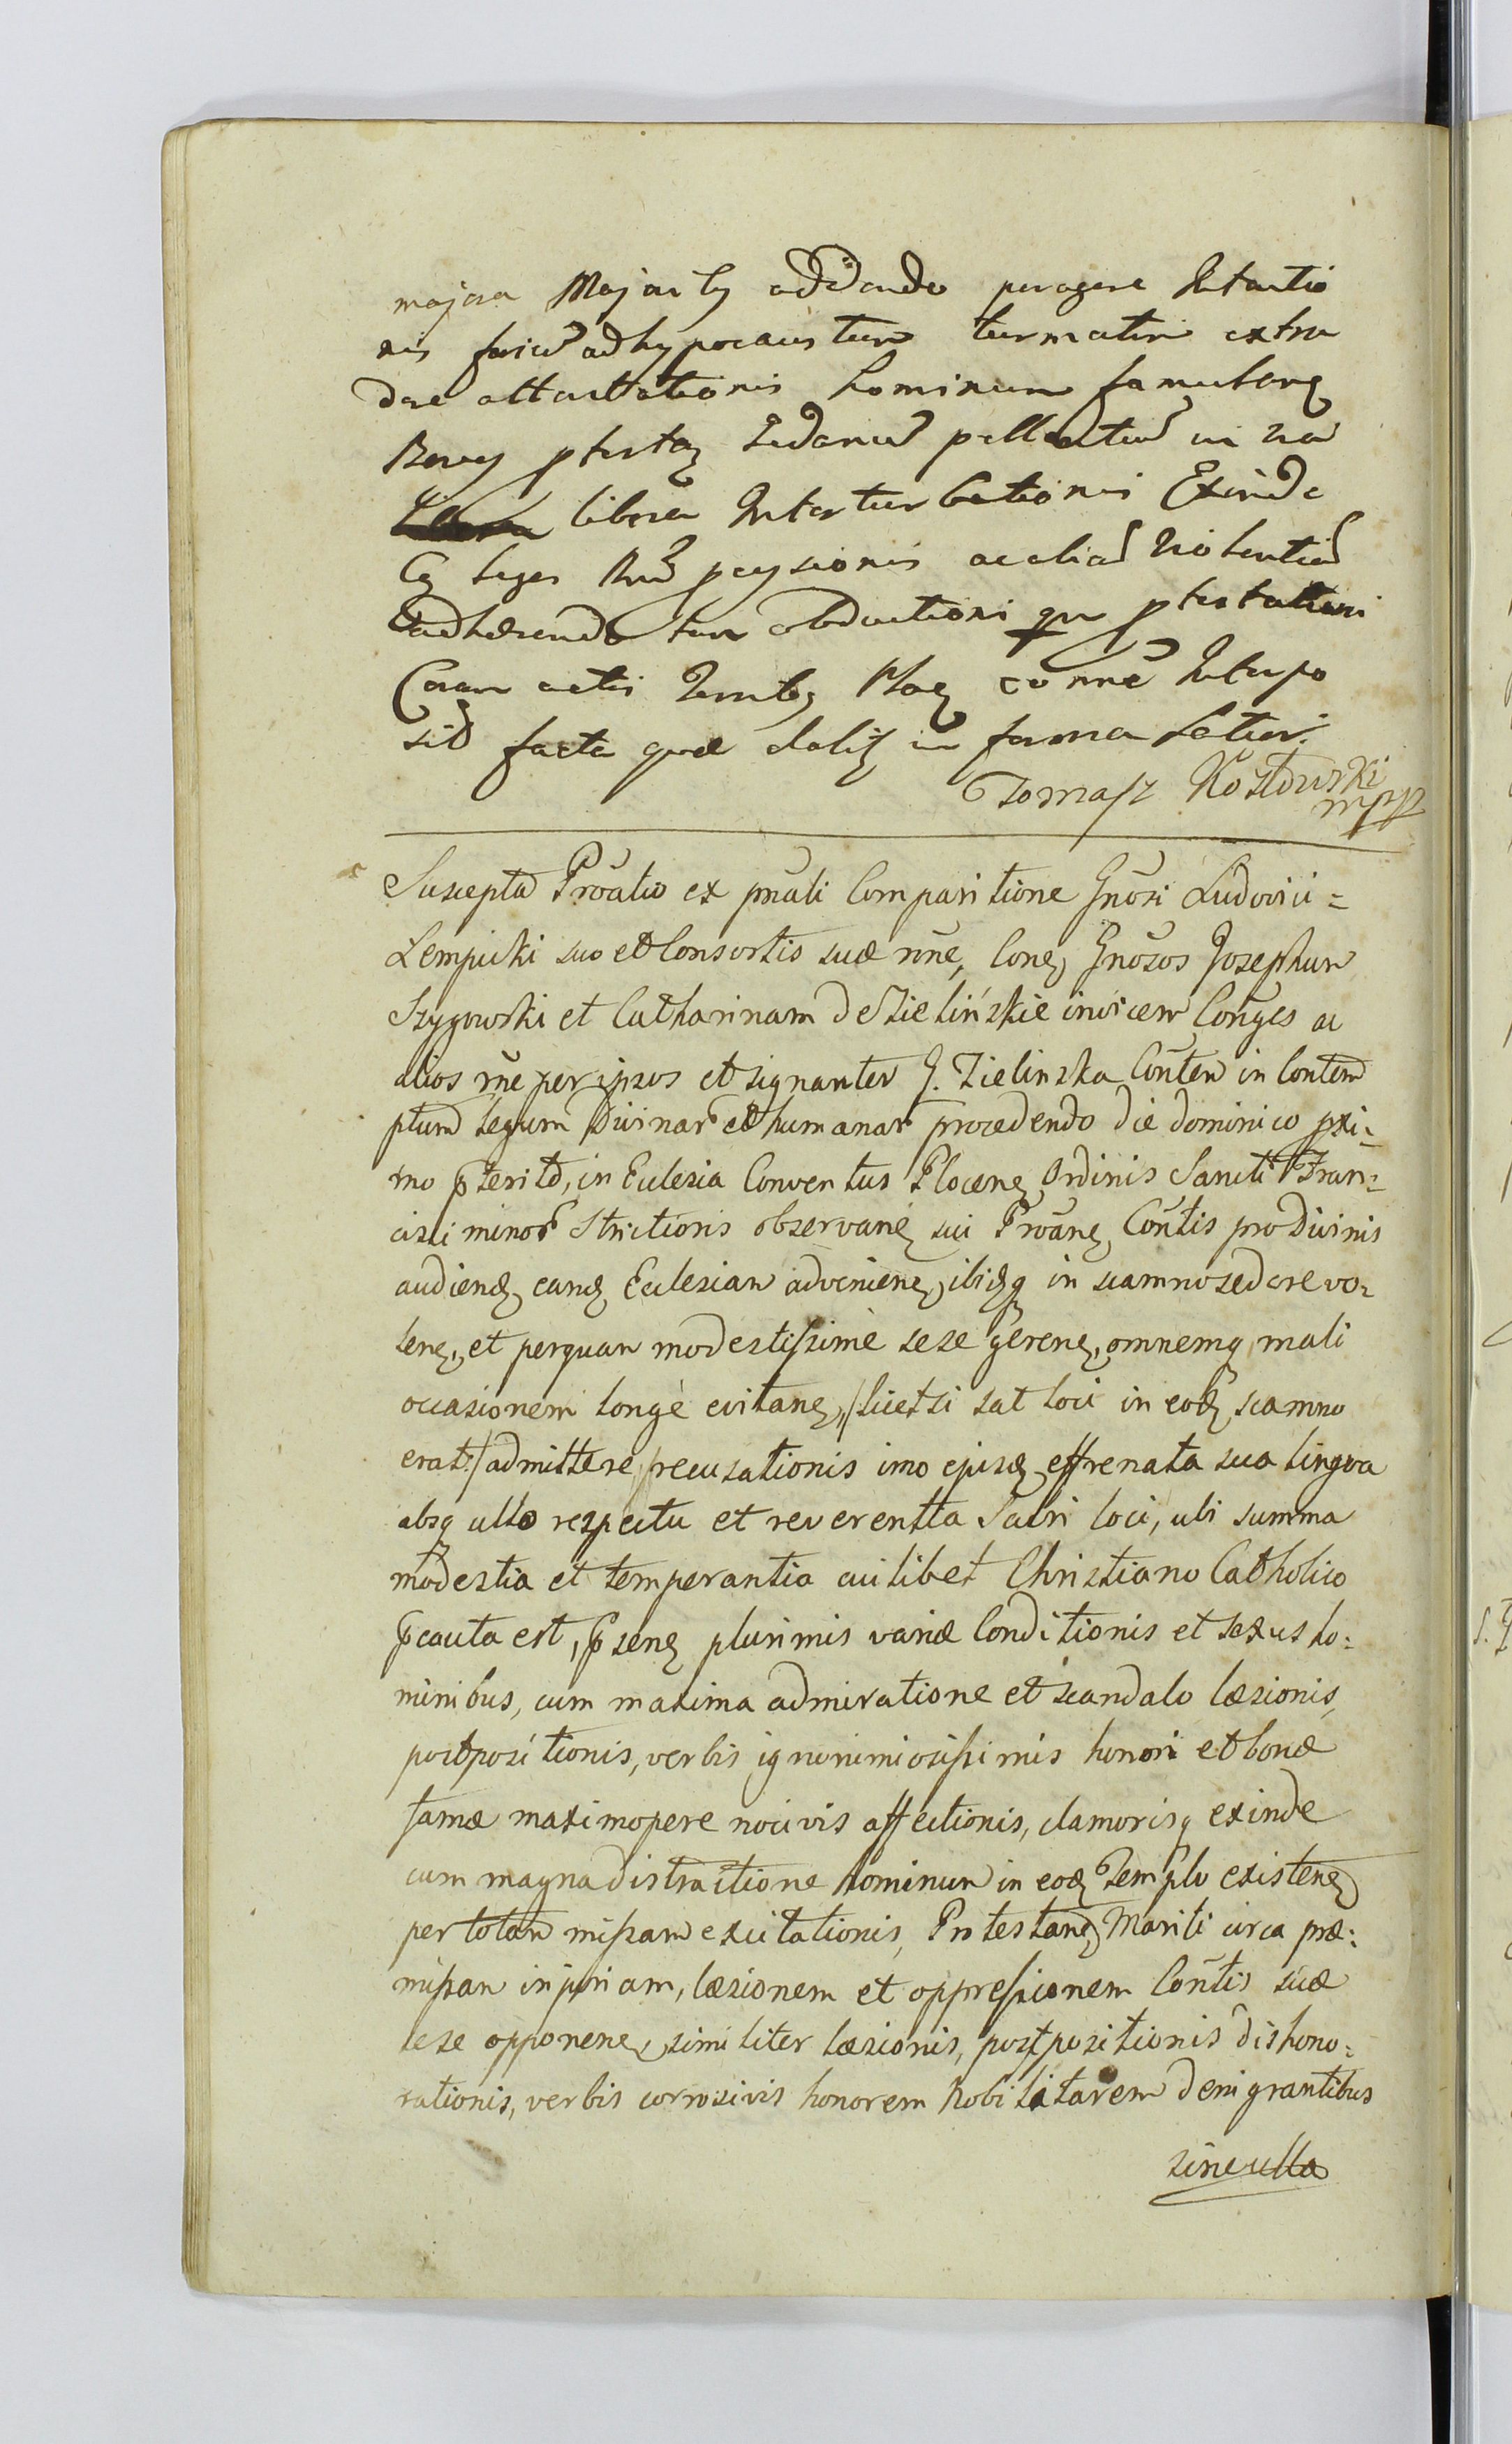 majora Majoribus addendo peragere Intentio
nis foriu͂ ad hypocaustum turmatim extra
dae attentationis hominum famulorq
libera Interturbationis Exinde
Cq leges Rni pcysionis ac aliar͂ violentiar͂
adhærendo tum obductioni qm ptestationi
Coram actis Plocq co nrne
sit facta quæ dabitur in forma Latior.
Tomasz Kozłowski
mpp
Suscepta Prōtatio ex pn̄ali Comparitione Gn̄osi Ludovici =
Lempicki suo et Consortis suæ nn̄e, Conq Gn̄osos Josephum
Szygowski et Catharinam de Zielińskie invicem Con̄ges ac
alios rn̄e per ipsos et signanter G. Zielinska Con̄tem in Contem
ptum legum Divinar͂ et humanar͂ procedendo die dominico pxi=
mo pterito, in Eclesia Conventus Plocenq Ordinis Sancti Fran=
cisci minor͂ Strictioris observanē sui Prōanq Con̄tis pro Divinis
audienq eanq Eclesiam advenienq, ibiq in scamno sedere vo=
lenq, et perquam modestissimè sese gerenq, omnemq mali
occasionem longè evitanq, /licet si sat loci in eoq scamno
erat:/ admittere recusationis imo ejusq effrenata sua lingva
absq ullo respectu et reverentia Sacri loci, ubi summa
modestia et temperantia cuilibet Christiano Catholico
pcauta est, psenq plurimis variæ Conditionis et sexus ho=
minibus, cum maxima admiratione et scandalo læsionis,
postpositionis, verbis ignominiosissimis honori et bonæ
famæ maximopere nocivis affectionis, clamorisq exinde
cum magna distractione hominum in eoq Templo existenq
per totam missam excitationis, Protestanq Mariti circa præ=
missam injuriam, læsionem et oppressionem Con̄tis suæ
sese opponenq, similiter læsionis, postpositionis dishono=
rationis, verbis corrosivis honorem Nobilitarem denigrantibus
sine ulla